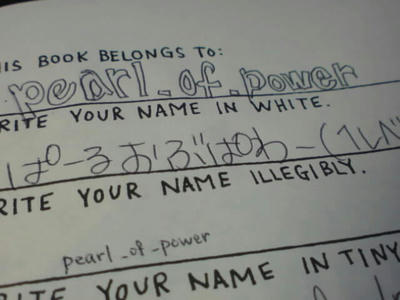 HIS BOOK BELONGS TO:
pearl_of_power
RITE YOUR NAME IN WHITE.
ぱーるおぶぱわー
RITE YOUR NAME ILLEGIBLY.
pearl_of_power
RITE YOUR NAME IN TINY